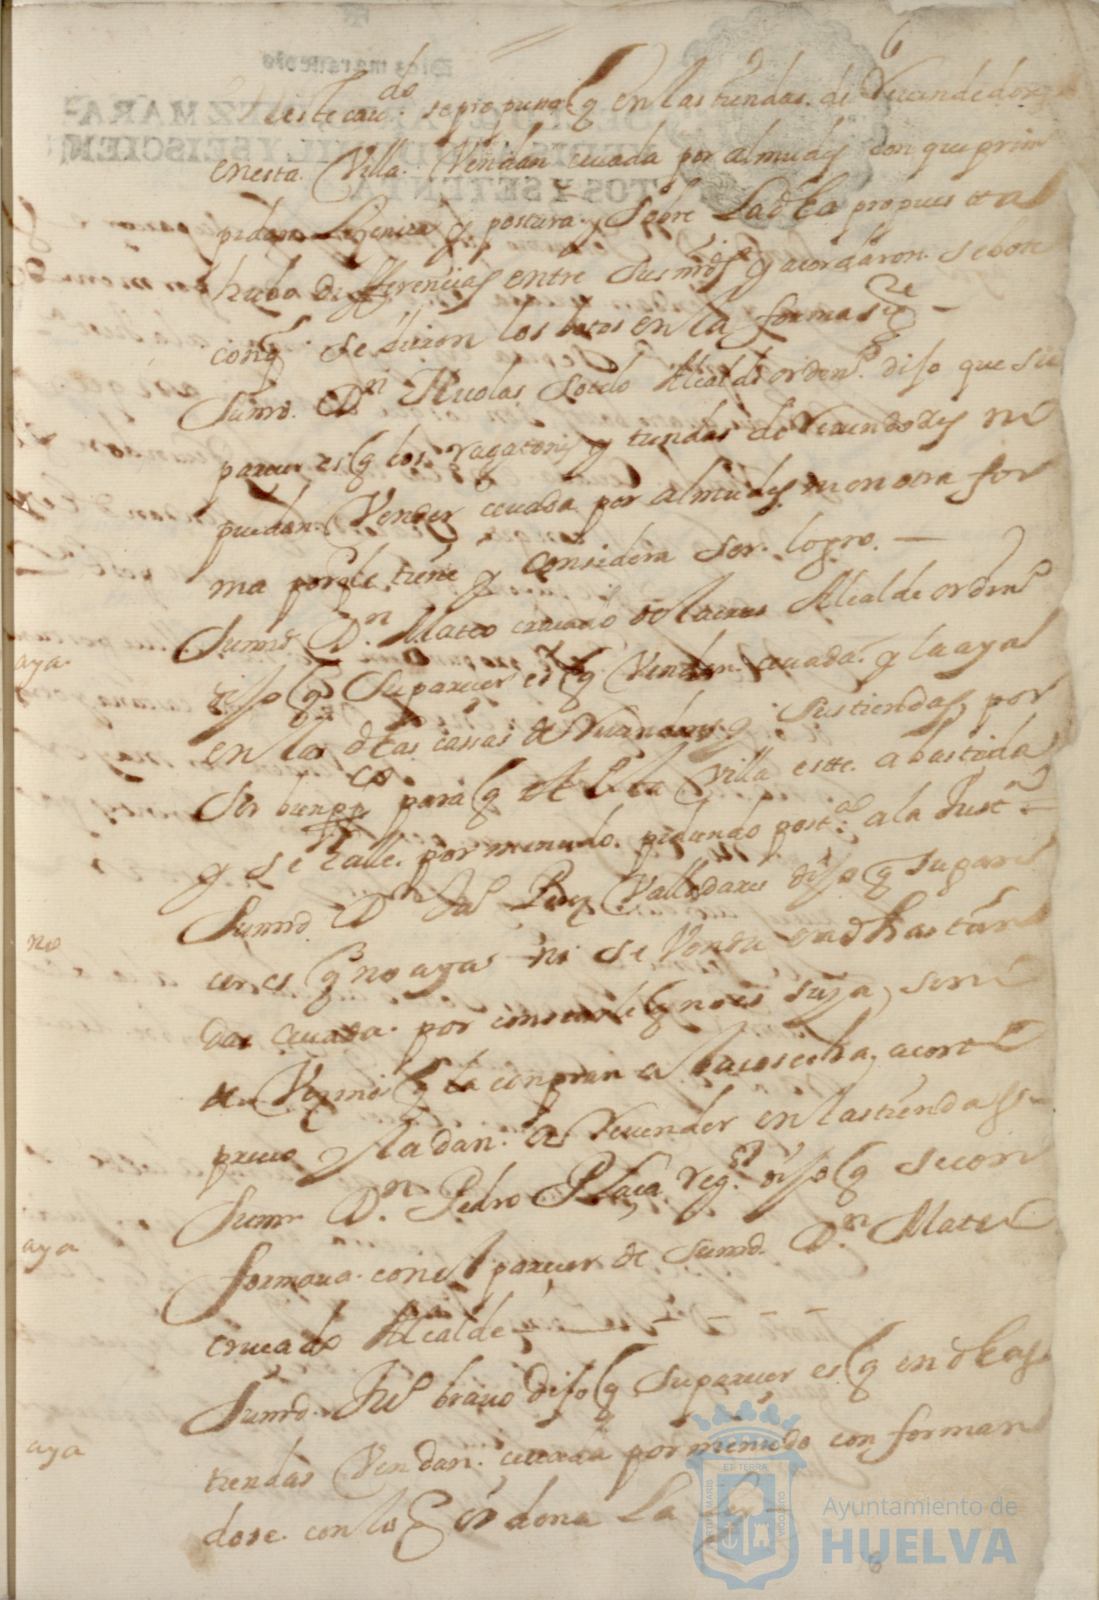 6
En este cavdo se propuso q en las tiendas de Revendedores
en esta Villa Vendan cevada por almudes con que prim
pidan Licencia y postura y sobre la dha propuesta
hubo diferencias entre sus mrds y acordaron se bote
conq se dieron los botos en la forma sigte
Su md Dn Nicolas Sotelo Alcalde orden° dijo que su
parecer es q los ragatones y tiendas de Revendedores no
puedan Vender cevada por almudes ni en otra for
ma porq le tiene y considera ser logro
Su md Dn Mateo cruçado de la cruz Alcalde orden°
dijo q su parecer es q Vendan cevada y la aya
aya
en las dhas cassas de y sus tiendas por
ser bien pco para q esta Villa este abastida
y se halle por menudo pidiendo post a la Just
Su md Dn Ju° Perez Valladares dijo q su pare
no
cer es q no aya ni se Venda en dhas tien
das cevada por constarle q no es suya, ser
de Vezinos q la conpran a la cosecha, a corto
precio y la dan a Revender en las tiendas
Su md Dn Pedro Plaça regor dijo q se con
formava con el parecer de su md Dn Mateo
aya
cruçado Alcalde
Su md Ju° bravo dijo q su parecer es q en dhas
tiendas Vendan cevada por menudo conforman
aya
dose con lo q ordena la
Ayuntamiento de
HUELVA